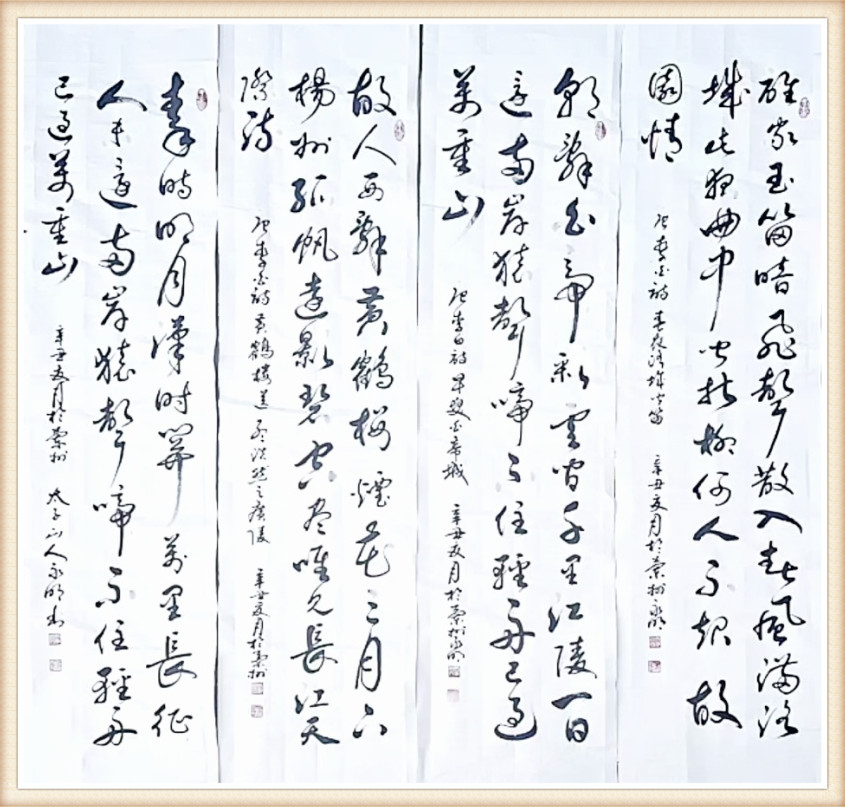 誰家玉笛暗飛聲散入春風滿洛
城此夜曲中聞折柳何人不起故
園情
李白詩春夜洛城聞笛 辛丑夏月於蘭州永明
朝辭白帝彩雲間千里江陵一日
還兩岸猿聲啼不住輕舟已過
萬重山
李白詩早發白帝城 辛丑夏月於蘭州永明
故人西辭黃鶴樓煙花三月下
揚州孤帆遠影碧空盡唯見長江天
際流
李白詩黃鶴樓送孟浩然之廣陵 辛丑夏月於蘭州
秦時明月漢時關萬里長征
人未還兩岸猿聲啼不住輕舟
已過萬重山 辛丑夏月於蘭州 太子山人永明書